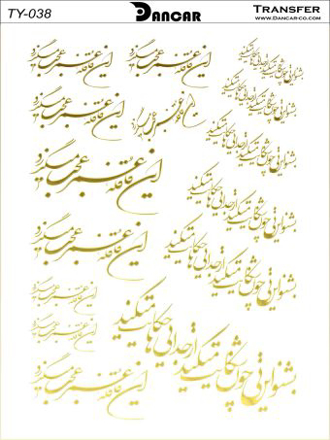 TY-038
DANCAR
TRANSFER
WWW.DANCAR-CO.COM
این قافله عمر عجب میگذرد
این قافله عمر عجب میگذرد
این قافله عمر عجب میگذرد
این قافله عمر عجب میگذرد
این قافله عمر عجب میگذرد
این قافله عمر عجب میگذرد
این قافله عمر عجب میگذرد
این قافله عمر عجب میگذرد
این قافله عمر عجب میگذرد
بشنو این نی چون شکایت میکند از جدایی ها حکایت میکند
بشنو این نی چون شکایت میکند از جدایی ها حکایت میکند
بشنو این نی چون شکایت میکند از جدایی ها حکایت میکند
بشنو این نی چون شکایت میکند از جدایی ها حکایت میکند
بشنو این نی چون شکایت میکند از جدایی ها حکایت میکند
بشنو این نی چون شکایت میکند از جدایی ها حکایت میکند